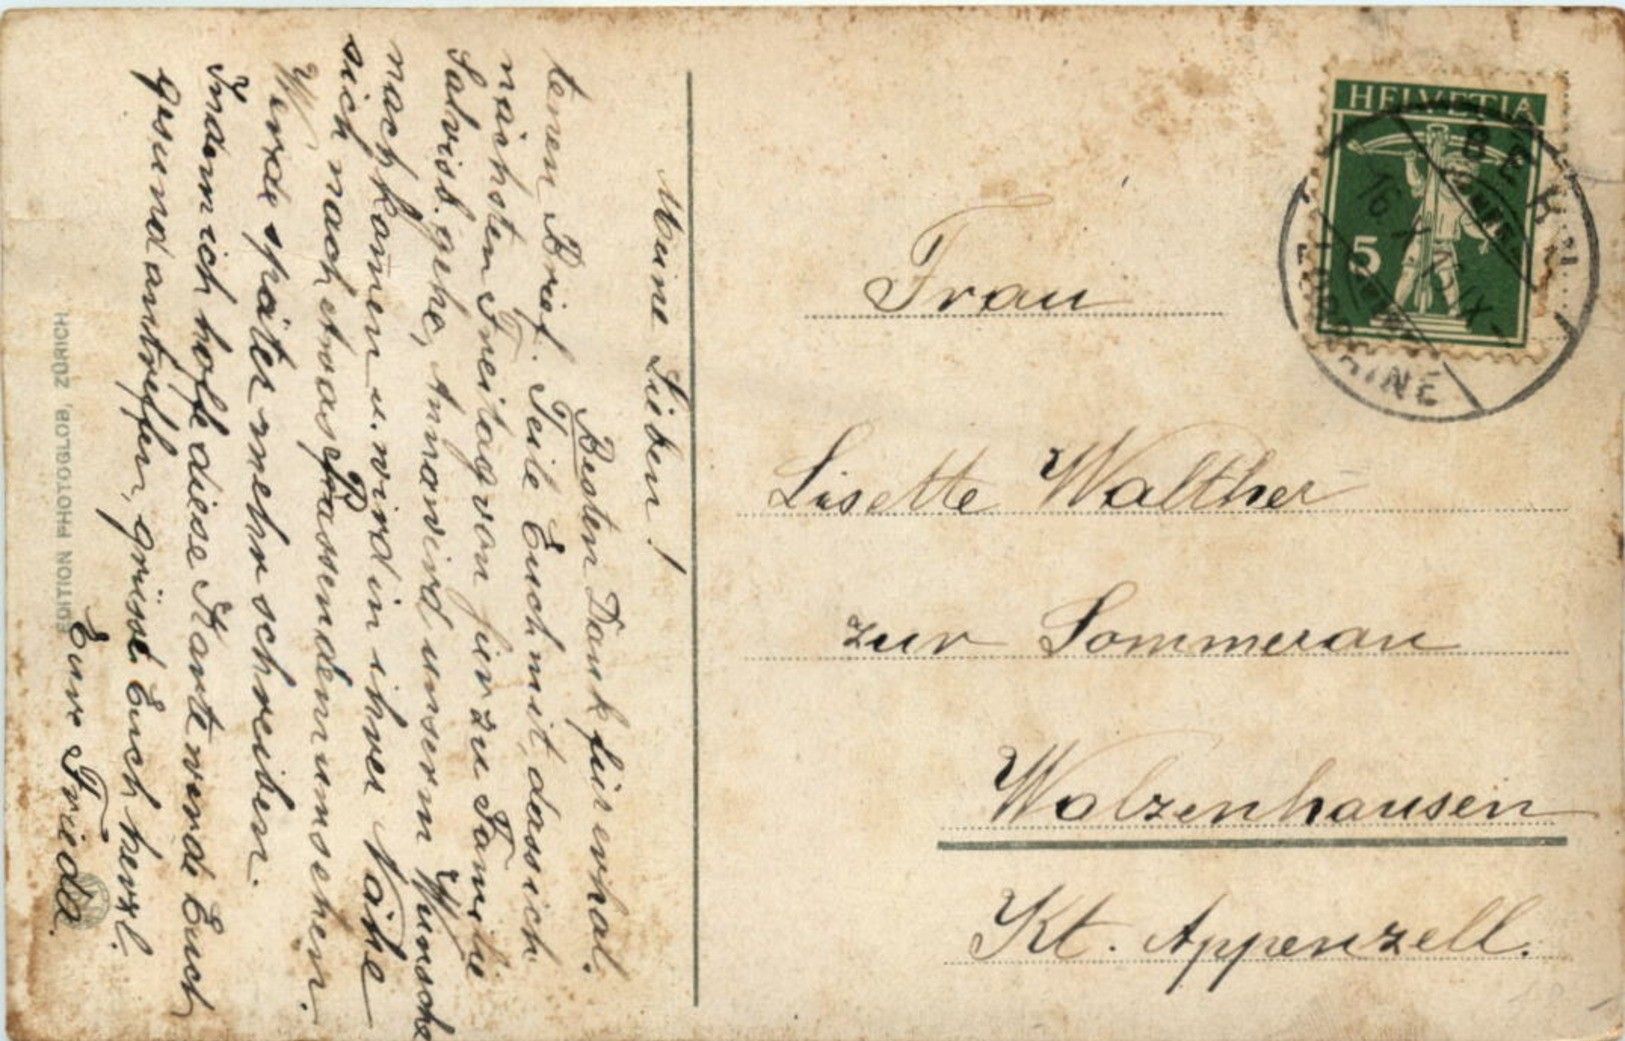 Meine Lieben!
Besten Dank für erhal.
tenen Brief. Teile Euch mit, dass ich
nächsten Freitag von hier zu Familie
Salvisb. gehe, Anna wird unserm Wunsche
nachkomen u. wird in ihrer Nähe
sich nach etwas Passendem umsehen.
Werde später mehr schreiben.
Indem ich hoffe diese Karte werde Euch
gesund antreffen, grüsst Euch herzl.
Eure Frieda.
EDITION PHOTOGLOB, ZÜRICH
HELVETIA
5
BERN
16. X. 15. IX-
Frau
Lisette Walther
zur Sommerau
Walzenhausen
Kt. Appenzell.